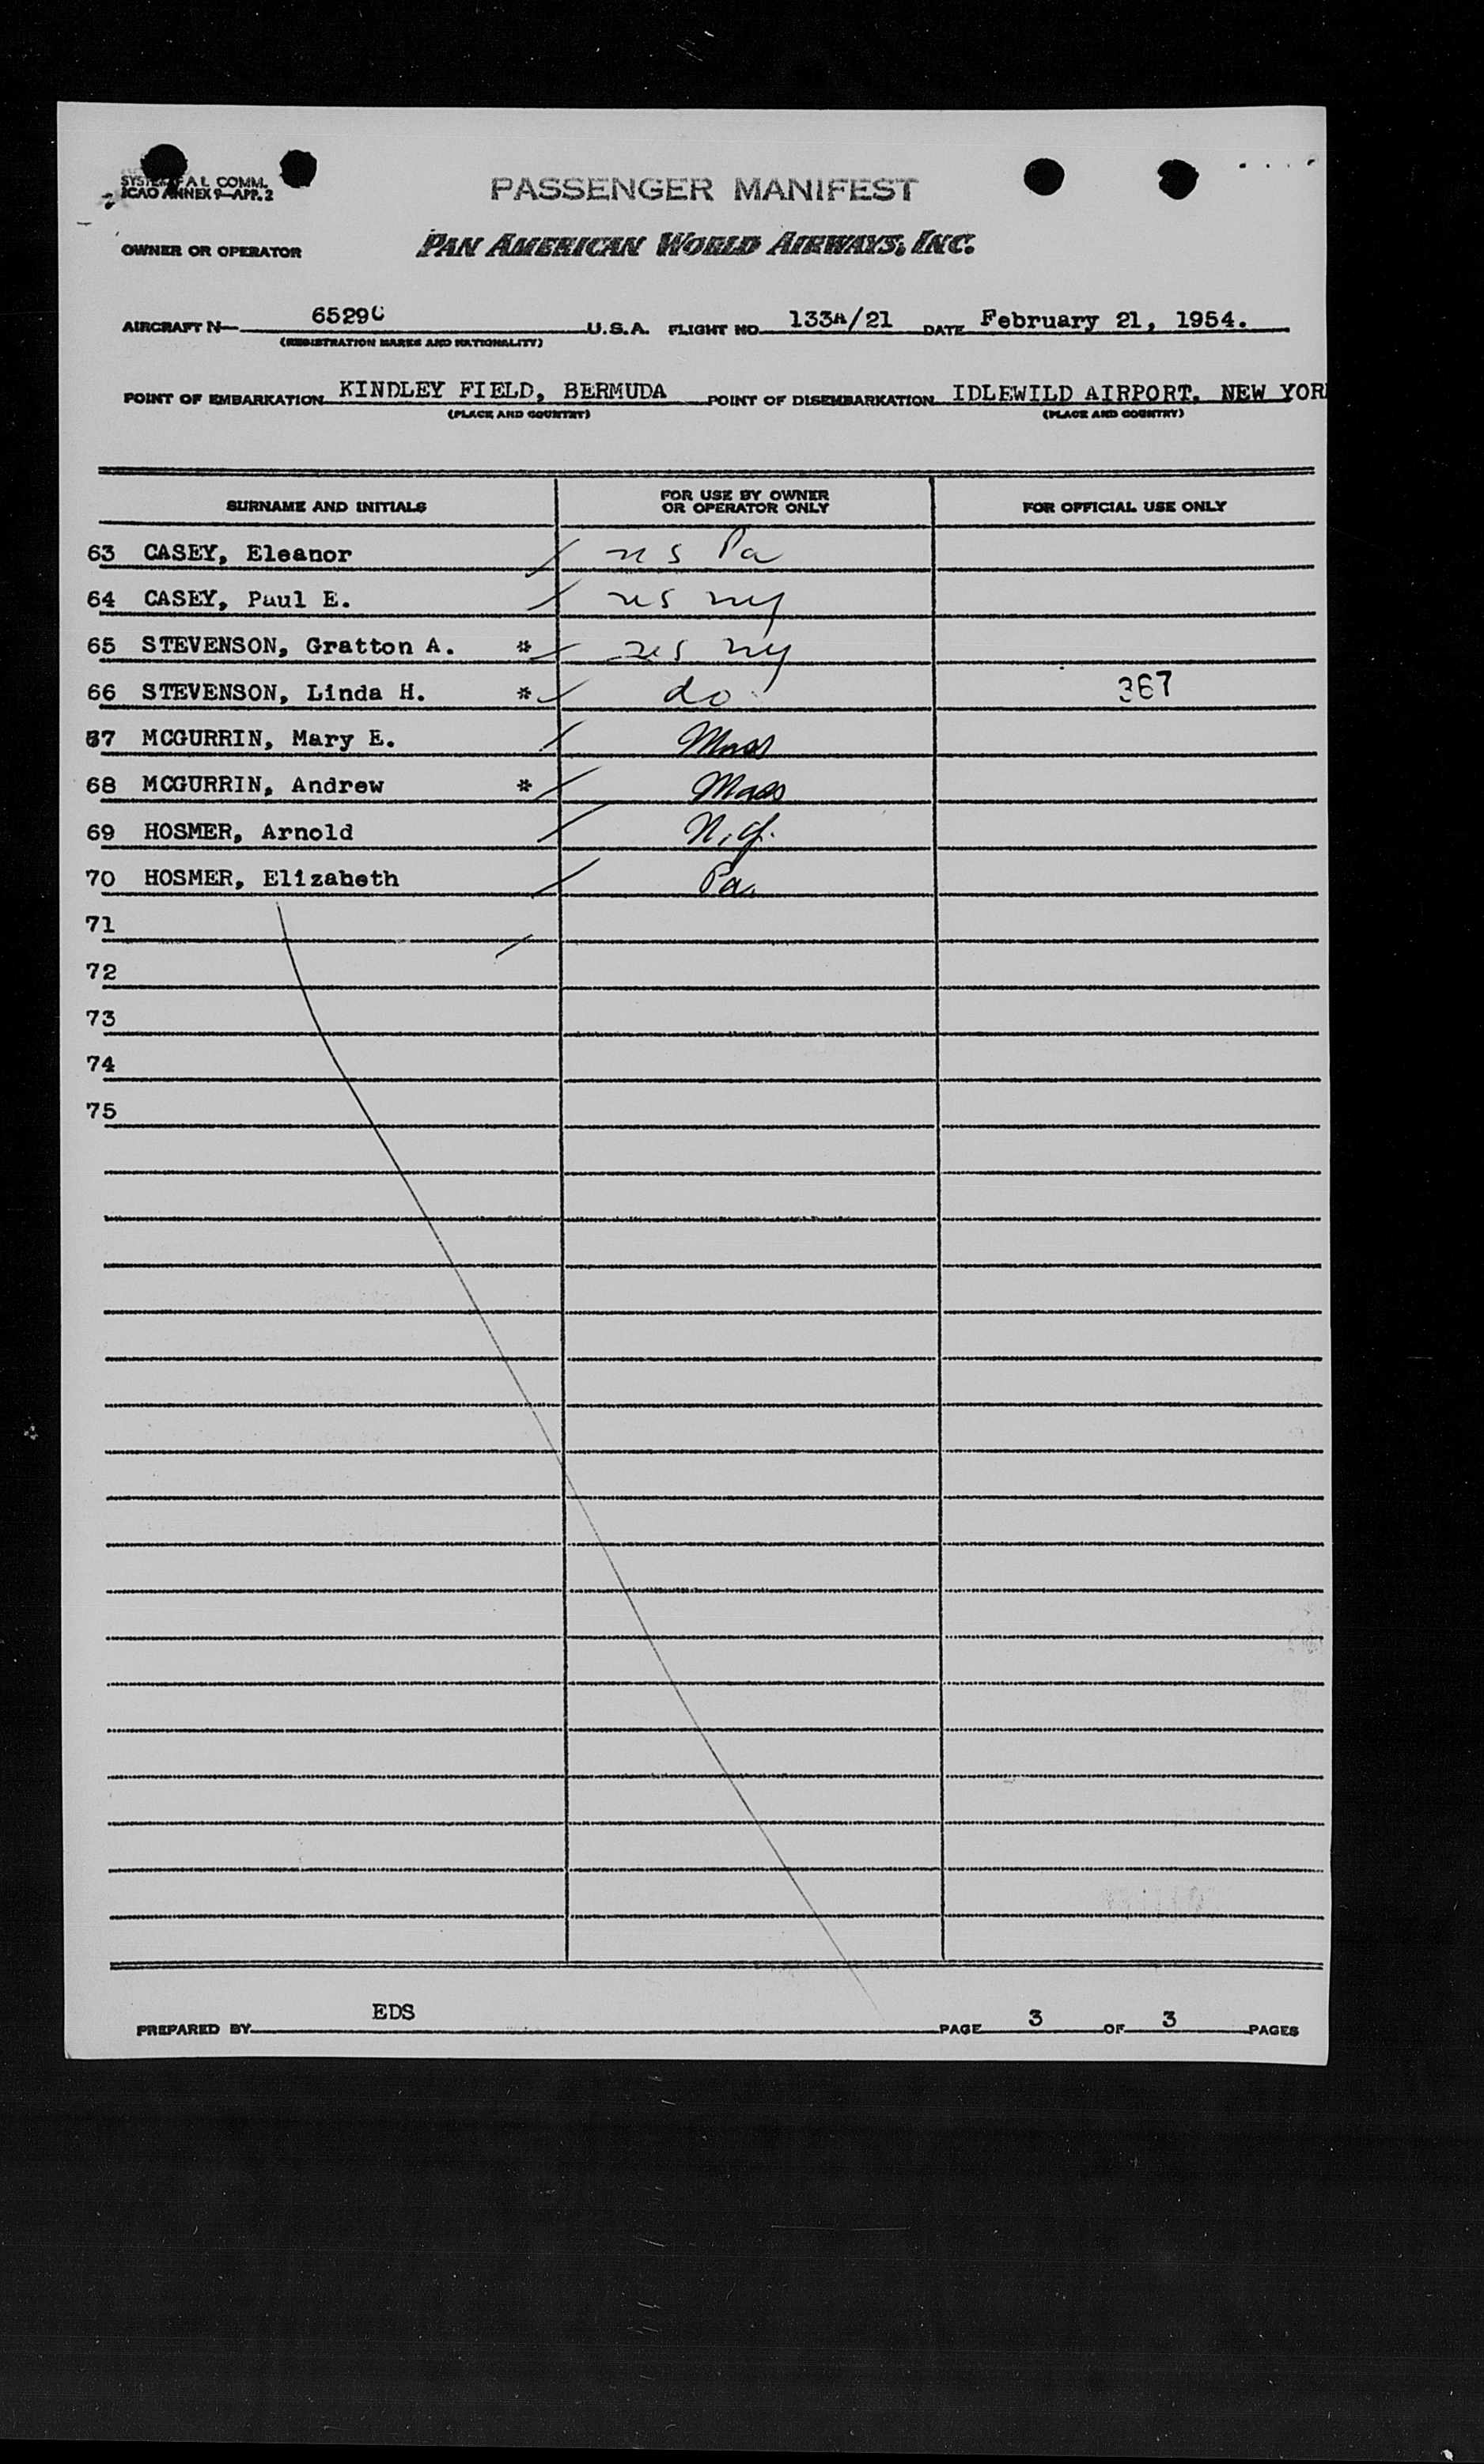 SYSTEM F A L COMM.
ICAO ANNEX 9—APP. 2
PASSENGER MANIFEST
OWNER OR OPERATOR PAN AMERICAN WORLD AIRWAYS, INC.
AIRCRAFT N— 6529C U.S.A. FLIGHT NO. 133A/21 DATE February 21, 1954.
(REGISTRATION MARKS AND NATIONALITY)
POINT OF EMBARKATION KINDLEY FIELD, BERMUDA POINT OF DISEMBARKATION IDLEWILD AIRPORT. NEW YOR
(PLACE AND COUNTRY) (PLACE AND COUNTRY)
SURNAME AND INITIALS FOR USE BY OWNER OR OPERATOR ONLY FOR OFFICIAL USE ONLY
63 CASEY, Eleanor / us Pa
64 CASEY, Paul E. / us ny
65 STEVENSON, Gratton A. * / us ny
66 STEVENSON, Linda H. * / do 367
67 MCGURRIN, Mary E. / Mass
68 MCGURRIN, Andrew * / Mass
69 HOSMER, Arnold / N.J.
70 HOSMER, Elizabeth / Pa.
71 /
72
73
74
75
PREPARED BY EDS PAGE 3 OF 3 PAGES